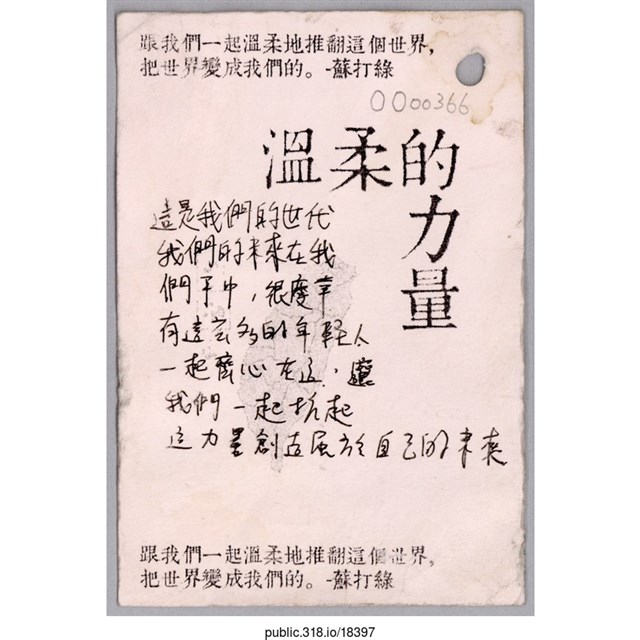 跟我們一起溫柔地推翻這個世界,
把世界變成我們的。-蘇打綠
0000366
溫柔的
力
量
這是我們的世代
我們的未來在我
們手中,很慶幸
有這麼多的年輕人
一起齊心在這,讓
我們一起抗起
這力量創造屬於自己的未來
跟我們一起溫柔地推翻這個世界,
把世界變成我們的。-蘇打綠
public.318.io/18397